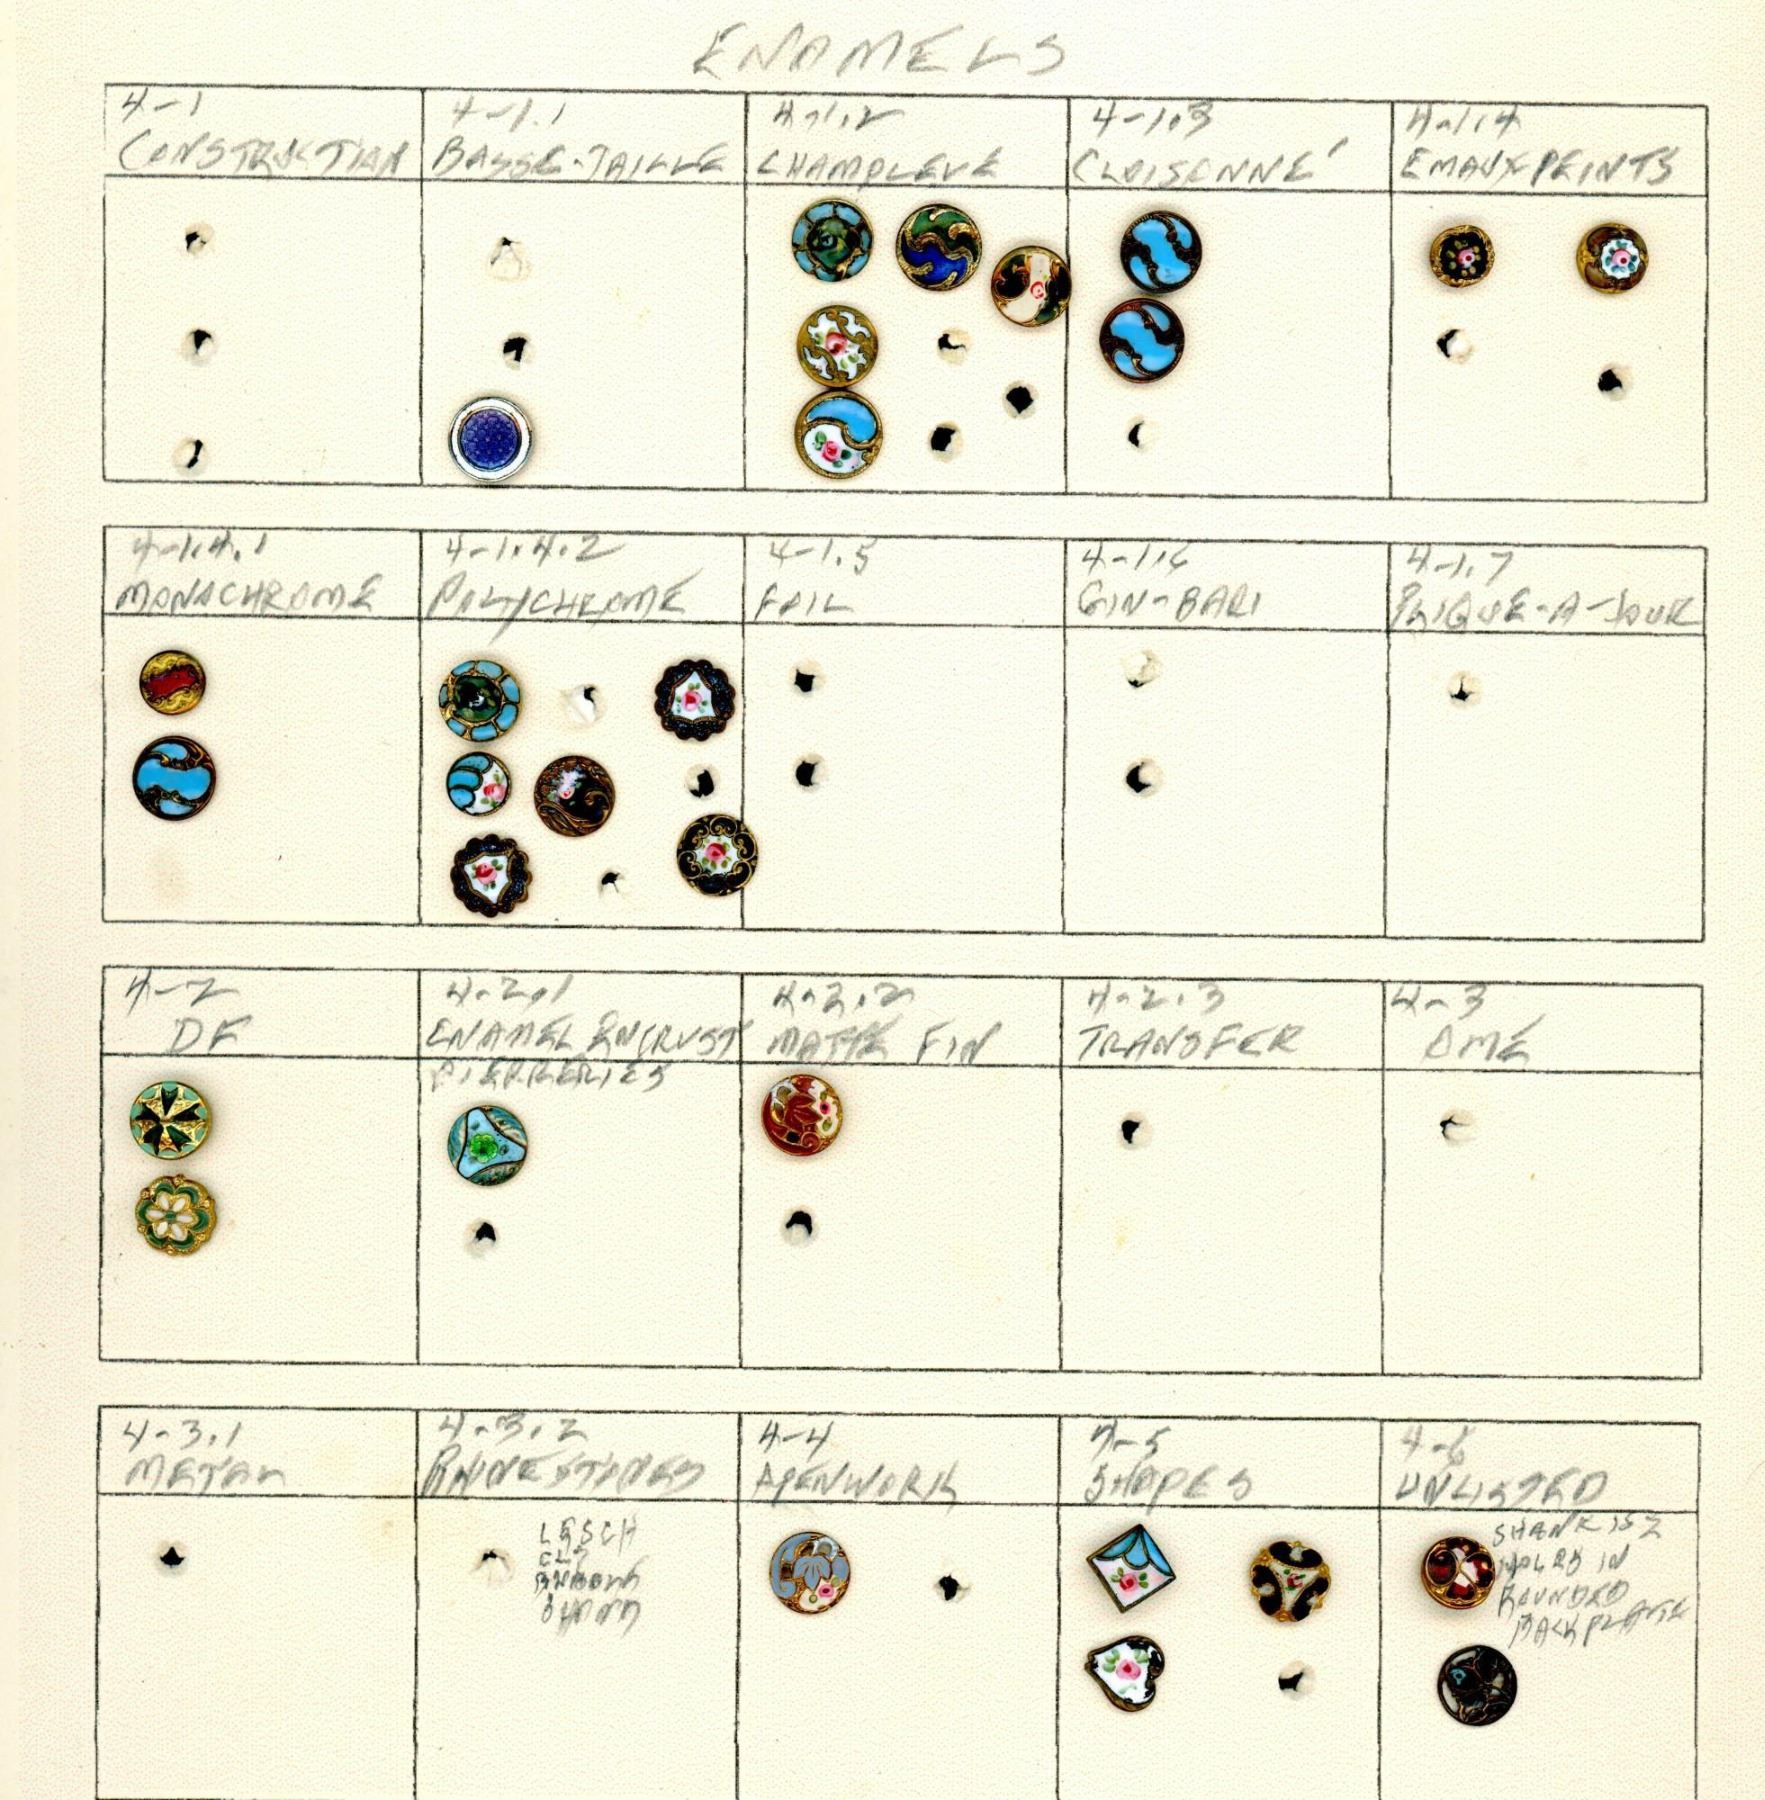 ENAMELS
4-1
CONSTRUCTION
4-1.1
BASSE-TAILLE
4-1.2
CHAMPLEVE
4-1.3
CLOISONNE'
4-1.4
EMAUX PEINTS
4-1.4.1
MONOCHROME
4-1.4.2
POLYCHROME
4-1.5
FOIL
4-1.6
GIN-BARI
4-1.7
PLIQUE-A-JOUR
4-2
DF
4-2.1
ENAMEL ENCRUST
PIERRERIES
4-2.2
MATTE FIN
4-2.3
TRANSFER
4-3
OME
4-3.1
METAL
4-3.2
RHINESTONES
LESCH
4-4
OPENWORK
4-5
SHAPES
4-6
UNLISTED
SHANK IS 2
HOLES IN
ROUNDED
BACK PLATE